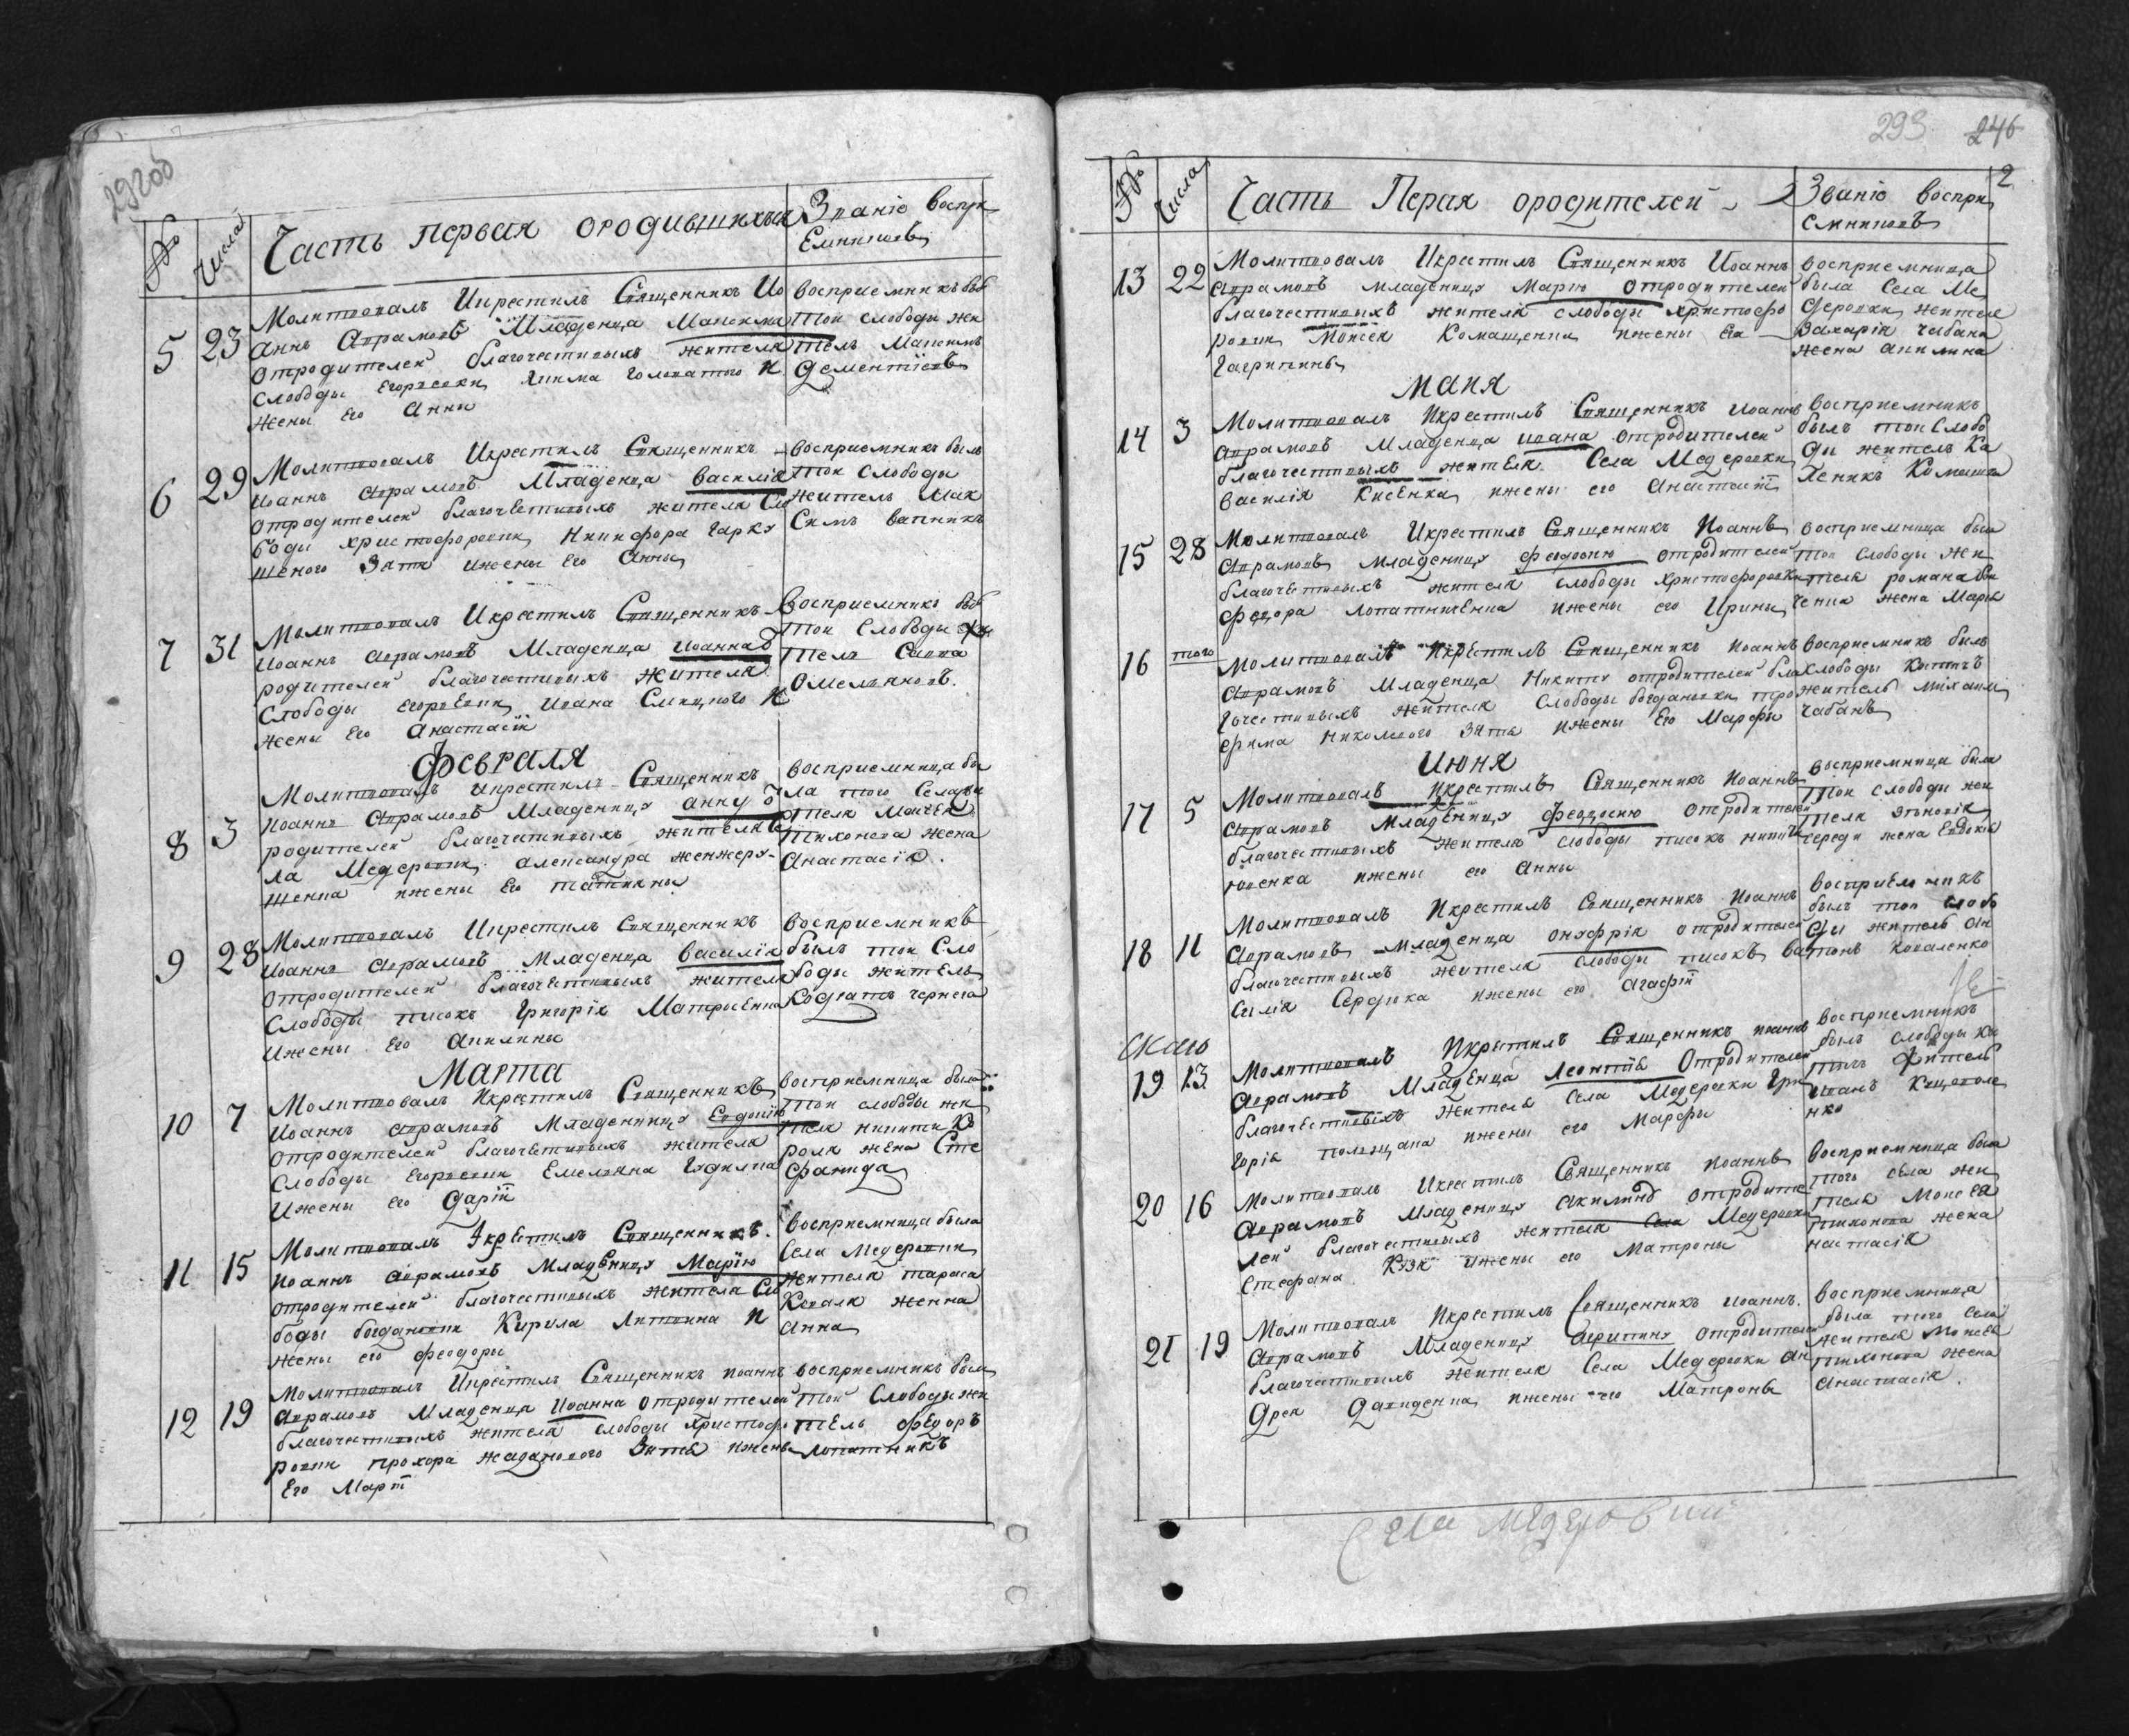 292об
№ Числа Часть первая ородившихься Званіе воспри
Емниковъ
5 23 Молитвовалъ Икрестилъ Священникъ Ио
Аннъ Аврамовъ Младенца Максима
Отродителей благочестивыхъ жителя
Слободы Егоровки Якима Головатого И
Жены Его Анны
восприемникъ был
Той слободы жи
тель Максимъ
Дементіевъ
6 29 Молитвовалъ Икрестилъ Священникъ
Иоаннъ Аврамовъ Младенца Василія
Отродителей благочестивыхъ жителя Сло
боды христофоровки Никифора Гарку
шеного Зятя Ижены Его Анны
Восприемникъ былъ
Той Слободы
Житель Мак
Симъ
7 31 Молитвовалъ Икрестилъ Священникъ
Иоаннъ Аврамовъ Младенца Иоанна о
родителей благочестивыхъ Жителя
Слободы Егоровки Ивана И
Жены Его Анастасіи
Восприемникъ был
Той Слободы Жи
Тель Савва
Омельяновъ.
Февраля
8 3 Молитвовалъ Икрестилъ Священникъ
Иоаннъ Аврамовъ Младеницу Анну о
родителей благочестивыхъ жителя Се
ла Медеровки Александра женжеру
шенка ижены Его татияны
Восприемница бы
ла того Села жи
теля Моисея
Тихонова жена
Анастасія.
9 28 Молитвовалъ Икрестилъ Священникъ
Иоаннъ Аврамовъ Младенца Василія
Отродителей благочестивыхъ жителя
Слободы писокъ Григорія
Ижены Его Акилины
Восприемникъ
былъ той Сло
боды житель
Кодратъ чернега
Марта
10 7 Молитвовалъ Икрестилъ Священникъ
Иоаннъ Аврамовъ Младеницу Евдокію
Отродителей благочестивыхъ жителя
Слободы Егоровки Емельяна
Ижены его Даріи
Восприемница была
Той слободы жи
теля Никиты Ко
роля жена Сте
фанида
11 15 Молитвовалъ Икрестилъ Священникъ.
Иоаннъ Аврамовъ Младеницу Марію
отродителей благочестивыхъ жителя Сло
боды богдановки Кирила Литвина И
Жены его феодоры
Восприемница была
Села Медеровки
жителя тараса
Коваля женна
Анна
12 19 Молитвовалъ Икрестилъ Священникъ Иоаннъ
Аврамовъ Младенца Иоанна Отродителей
благочестивыхъ жителя слободы христофо
ровки прохора Жаданового Зятя ижены
Его Март
восприемникъ былъ
Той Слободы жи
тель федоръ
Лопатникъ
293 246
№ Числа Часть Перая ородителей Званіе воспри
Емниковъ 2
13 22 Молитвовалъ Икрестилъ Священникъ Иоаннъ
Аврамовъ младеницу Марію Отродителей
благочестивыхъ жителя слободы христофо
ровки Моисея Комащенка ижены Его
Гагрипины
восприемница
была Села Ме
деровки жителя
Захарія Чабана
жена Акилина
Мапя
14 3 Молитвовалъ Икрестилъ Священникъ Иоаннъ
Аврамовъ Младенца ивана Отродителей
благочестивыхъ жителя Села Медеровки
Василія Кисенка ижены его Анастасіи
Восприемникъ
былъ той Слобо
ды житель Ка
леникъ
15 28 Молитвовалъ Икрестилъ Священникъ Иоаннъ
Аврамовъ Младеницу феодосию отродителей
благочестивыхъ жителя слободы христофоровки
федора Лопатниченка ижены его Ирины
восприемница была
той слободы жи
теля романа
жена Марія
16 того Молитвовалъ Икрестилъ Священникъ Иоаннъ
Аврамовъ Младенца Никиту отродителей бла
гочестивыхъ жителя Слободы богдановки тро
фима Зятя ижены Его Марфы
Восприемникъ былъ
Слободы
житель михаилъ
чабанъ
Июня
17 5 Молитвовалъ Икрестилъ Священникъ Иоаннъ
Аврамовъ Младеницу феодосию отродителей
благочестивыхъ жителя слободы писокъ
ижены его Анны
восприемница была
Той слободы жи
теля зѣновія
череди жена Евдокія
18 11 Молитвовалъ Икрестилъ Священникъ Иоаннъ
Аврамовъ младенца онуфрія отродителей
благочестивыхъ жителя слободы писокъ ва
силія Сердюка ижены его Агафіи
Восприемникъ
былъ той слобо
ды житель Ан
тонъ Коваленко
19 13 Молитвовалъ Икрестилъ Священникъ Иоаннъ
Аврамовъ Младенца Леонтія Отродителей
благочестивыхъ жителя Села Медеровки Гри
горія ижены его Марфы
Восприемникъ
былъ слободы
житель
Иванъ
нко
20 16 Молитвовалъ Икрестилъ Священникъ Иоаннъ
Аврамовъ Младеницу Акилину отродите
лей благочестивыхъ жителя Села Медеровки
Стефана ижены его Матроны
Восприемница была
того села жи
теля Моисея
тихонова жена
настасія
21 19 Молитвовалъ Икрестилъ Священникъ Иоаннъ.
Аврамовъ Младеницу Агрипину отродителей
благочестивыхъ жителя Села Медеровки Ан
дрея Давиденка ижены его Матроны
Восприемница
была того Села
жителя Моисея
тихонова жена
Анастасія.
Села Медеровки